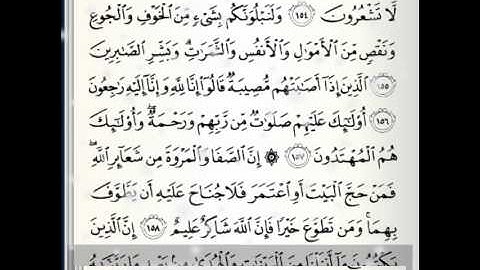 لَّا تَشْعُرُونَ ١٥٤ وَلَنَبْلُوَنَّكُم بِشَىْءٍ مِّنَ ٱلْخَوْفِ وَٱلْجُوعِ
وَنَقْصٍ مِّنَ ٱلْأَمْوَٰلِ وَٱلْأَنفُسِ وَٱلثَّمَرَٰتِ ۗ وَبَشِّرِ ٱلصَّٰبِرِينَ
١٥٥ ٱلَّذِينَ إِذَآ أَصَٰبَتْهُم مُّصِيبَةٌ قَالُوٓا۟ إِنَّا لِلَّهِ وَإِنَّآ إِلَيْهِ رَٰجِعُونَ
١٥٦ أُو۟لَٰٓئِكَ عَلَيْهِمْ صَلَوَٰتٌ مِّن رَّبِّهِمْ وَرَحْمَةٌ ۖ وَأُو۟لَٰٓئِكَ
هُمُ ٱلْمُهْتَدُونَ ١٥٧ ۞ إِنَّ ٱلصَّفَا وَٱلْمَرْوَةَ مِن شَعَآئِرِ ٱللَّهِ ۖ
فَمَنْ حَجَّ ٱلْبَيْتَ أَوِ ٱعْتَمَرَ فَلَا جُنَاحَ عَلَيْهِ أَن يَطَّوَّفَ
بِهِمَا ۚ وَمَن تَطَوَّعَ خَيْرًا فَإِنَّ ٱللَّهَ شَاكِرٌ عَلِيمٌ ١٥٨ إِنَّ ٱلَّذِينَ
يَكْتُمُونَ مَآ أَنزَلْنَا مِنَ ٱلْبَيِّنَٰتِ وَٱلْهُدَىٰ مِنۢ بَعْدِ مَا بَيَّنَّٰهُ